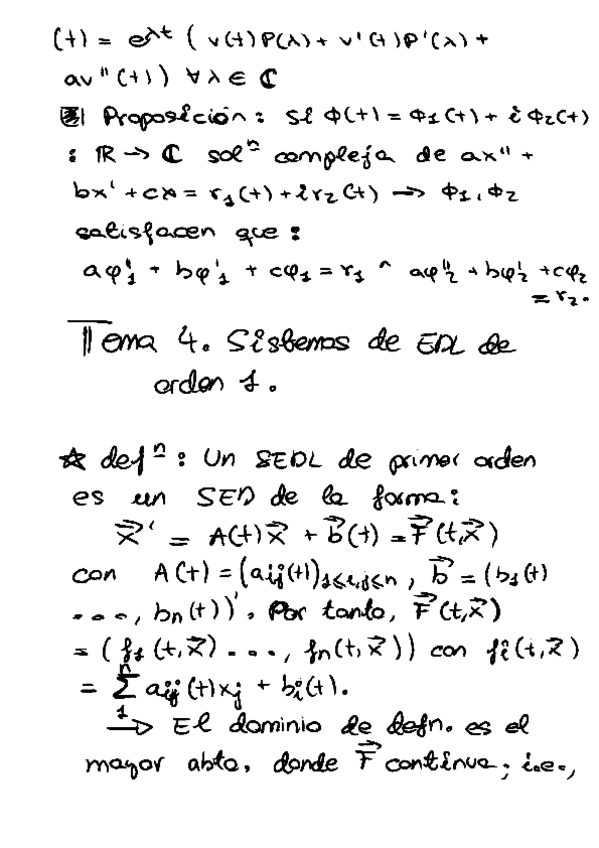 (t) = e^{λt} ( v(t)P(λ) + v'(t)P'(λ) +
av''(t)) ∀ λ ∈ ℂ
Proposición: Si ϕ(t) = ϕ₁(t) + i ϕ₂(t)
: ℝ → ℂ solⁿ compleja de ax'' +
bx' + cx = r₁(t) + ir₂(t) → ϕ₁, ϕ₂
satisfacen que :
aφ₁'' + bφ₁' + cφ₁ = r₁ ^ aφ₂'' + bφ₂' + cφ₂
= r₂.
Tema 4. Sistemas de EDL de
orden 1.
☆ defⁿ : Un SEDL de primer orden
es un SED de la forma :
x⃗' = A(t)x⃗ + b⃗(t) = F⃗(t,x⃗)
con A(t) = (aij(t))₁≤i,j≤n , b⃗ = (b₁(t)
..., bn(t))'. Por tanto, F⃗(t,x⃗)
= (f₁(t,x⃗)..., fn(t,x⃗)) con fi(t,x⃗)
= Σ₁ⁿ aij(t)xj + bi(t).
→ El dominio de defn. es el
mayor abto. donde F⃗ continua; i.e.,